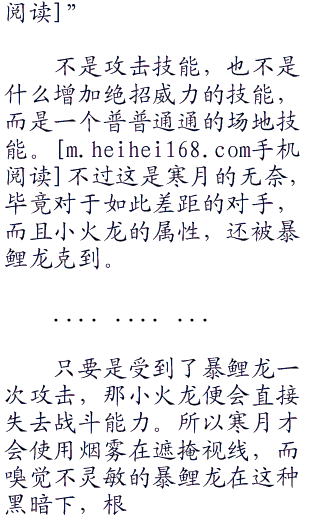 阅读]”
不是攻击技能，也不是
什么增加绝招威力的技能，
而是一个普普通通的场地技
能。[m.heihei168.com手机
阅读]不过这是寒月的无奈，
毕竟对于如此差距的对手，
而且小火龙的属性，还被暴
鲤龙克到。
.... .... ...
只要是受到了暴鲤龙一
次攻击，那小火龙便会直接
失去战斗能力。所以寒月才
会使用烟雾在遮掩视线，而
嗅觉不灵敏的暴鲤龙在这种
黑暗下，根